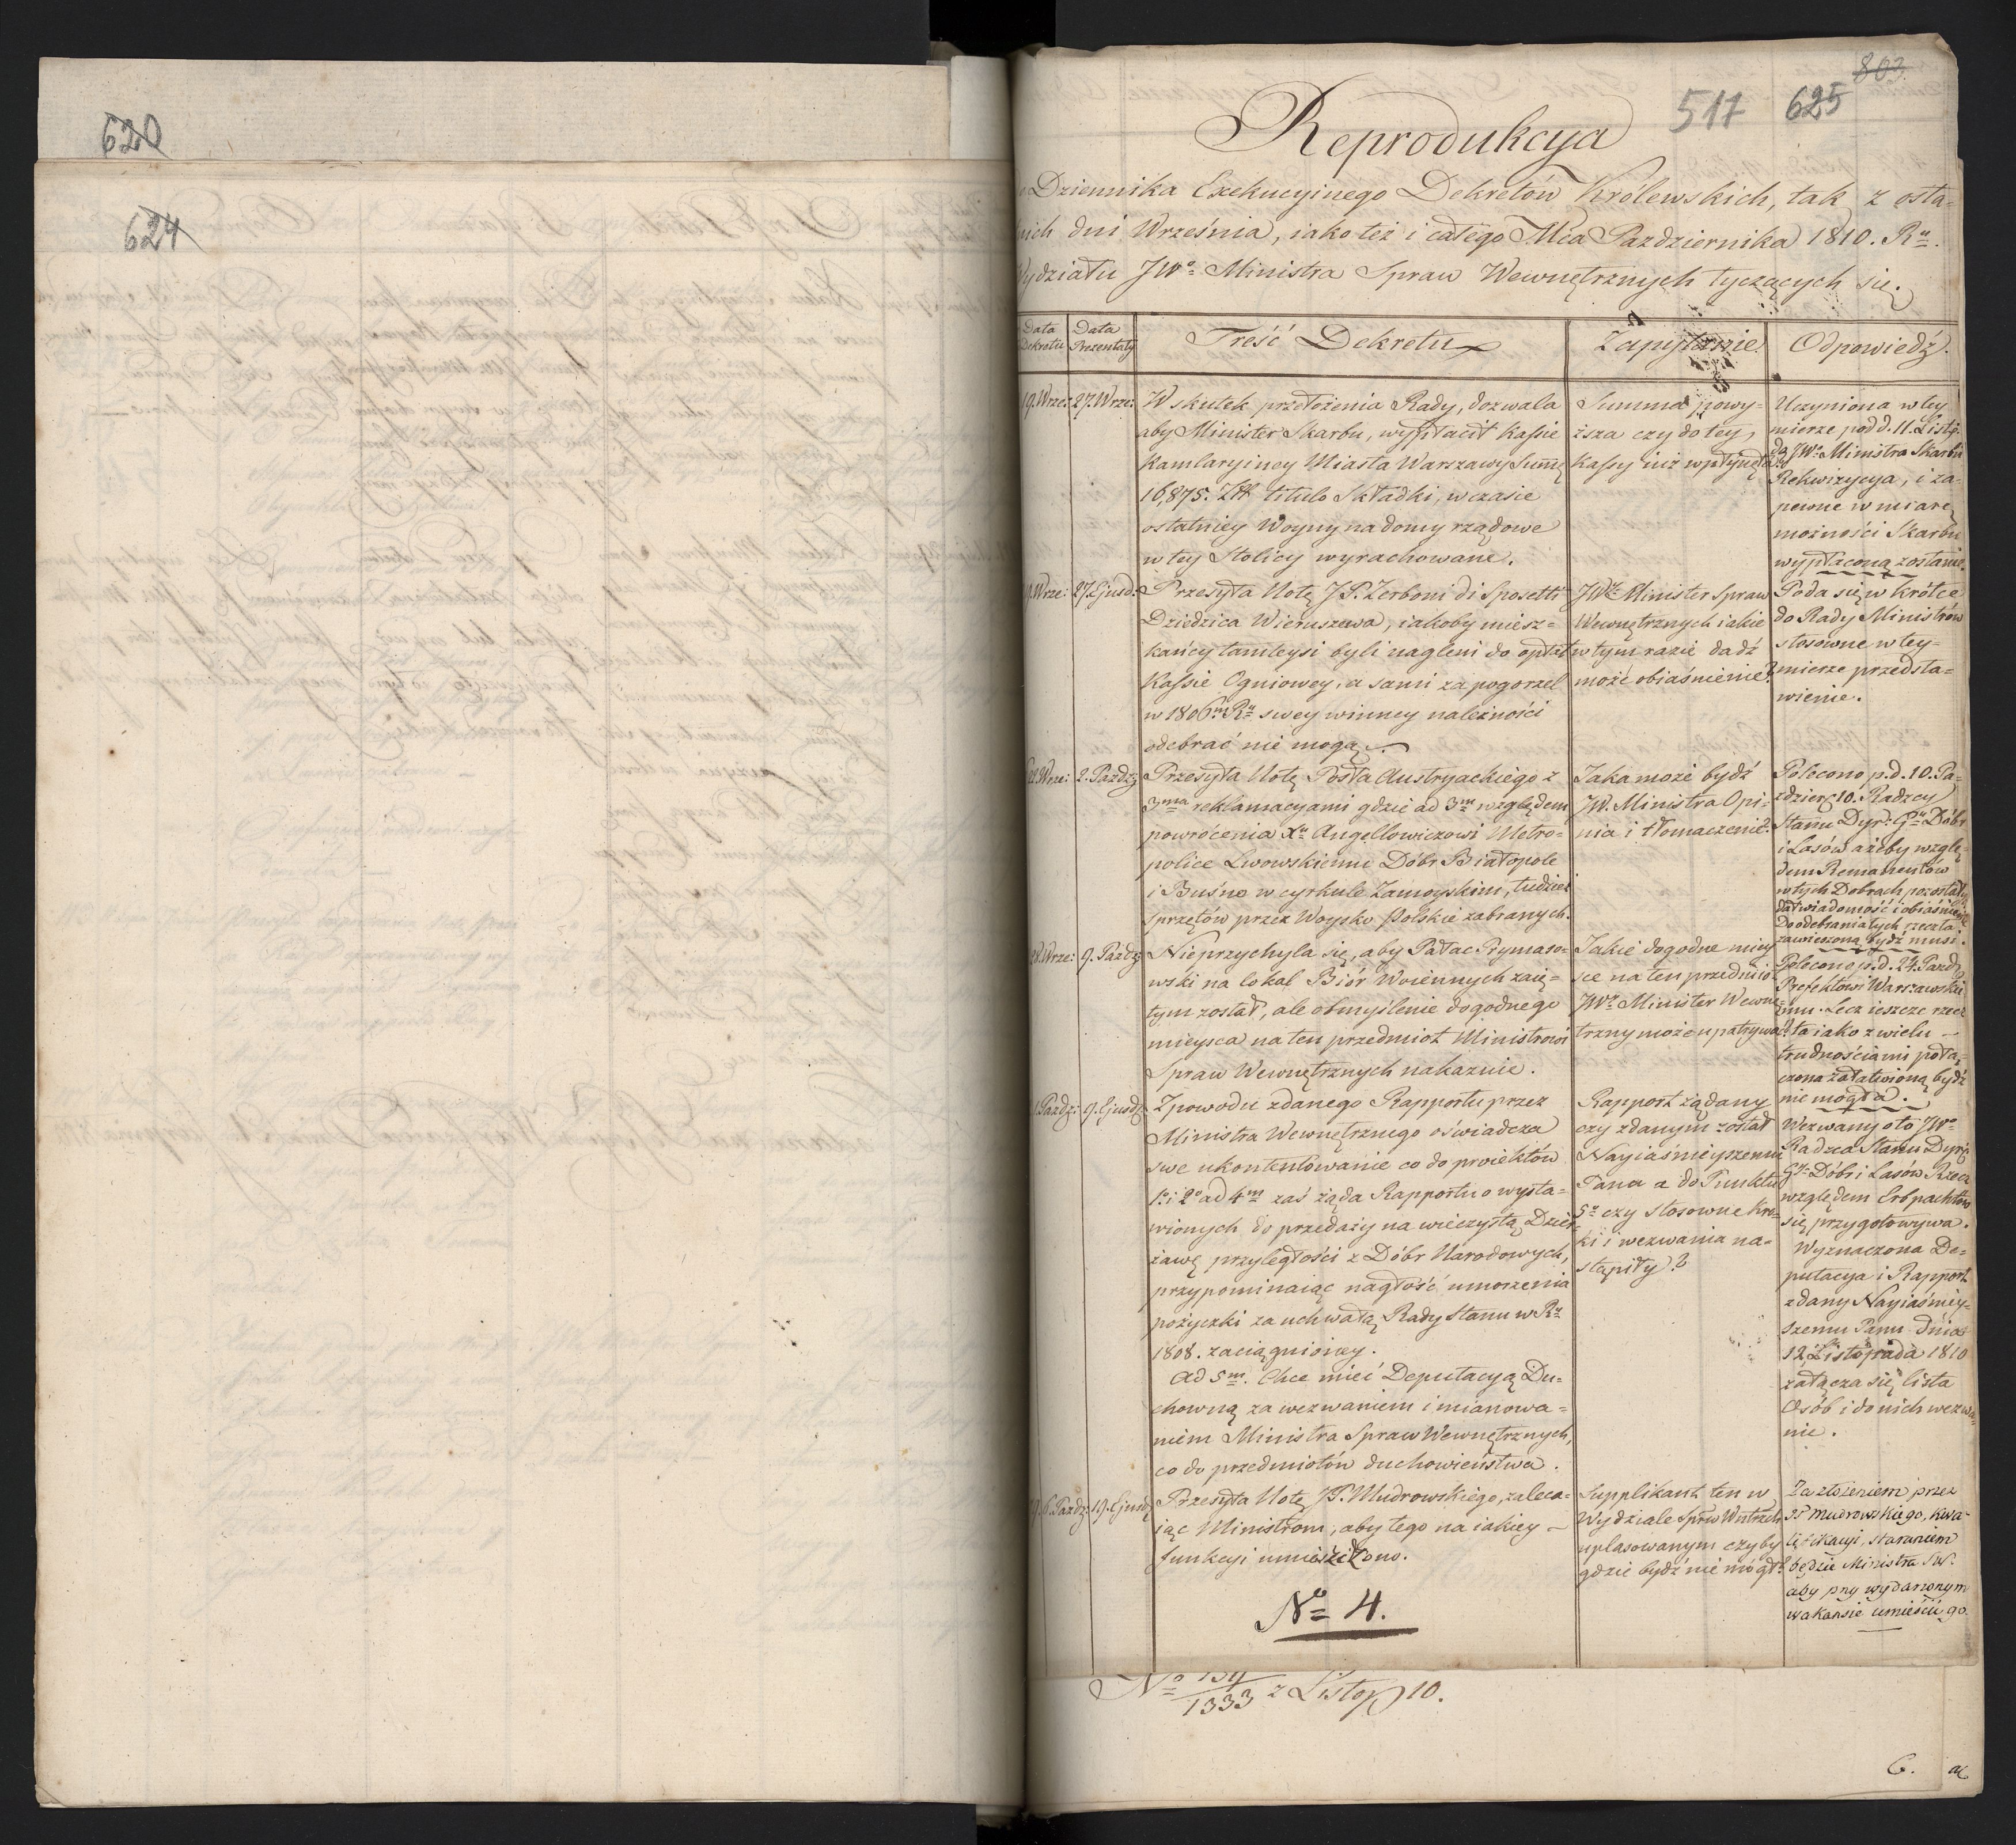 620
624
803.
517 625
Reprodukcya
Dziennika Exekucyinego Dekretów Królewskich, tak z osta=
nich dni Września, iako też i całego Mca Pazdziernika 1810. Ru.
Wydziału JWo Ministra Spraw Wewnętrznych tyczących się.
Data Dekretu
Data Prezentaty
Treść Dekretu
Zapytanie.
Odpowiedź.
19. Wrze:
27. Wrze:
W skutek przełożenia Rady, dozwala
aby Minister Skarbu, wypłacił Kassie
Kamlaryiney Miasta Warszawy Summę
16,875. Złł titulo Składki, w czasie
ostatniey Woyny na domy rządowe
w tey Stolicy wyrachowane.
Summa powy=
ższa czy do tey
Kassy iuż wpłynęła?
Uczyniona w tey
mierze pod d. 11. Listp.
do JWo Ministra Skarbu
Rekwizycya, i za=
pewne w miarę
możności Skarbu
wypłaconą zostanie.
9. Wrze:
27. Ejusd.
Przesyła Notę JP. Zerboni di Sposetti
Dziedzica Wieruszewa, iakoby miesz=
kańcy tamteysi byli nagleni do opłat
Kassie Ogniowey, a sami za pogorzel
w 1806m Ru swey winney należności
odebrać nie mogą.
JWy Minister Spraw
Wewnętrznych iakie
w tym razie dadź
może obiaśnienie?
Poda się w krótce
do Rady Ministrów
stosowne w tey=
mierze przedsta=
wienie.
22. Wrze:
2. Pazdz:
Przesyła Notę Posła Austryackiego z
3ma reklamacyami gdzie ad 3m względem
powrócenia Xu Angellowiczowi Metro=
police Lwowskiemu Dóbr Białopole
i Buśno w cyrkule Zamoyskim, tudzież
sprzętów przez Woysko Polskie zabranych.
Jaka może bydź
JW. Ministra Opi=
nia i tłomaczenie?
Polecono p. d. 10. Pa=
zdzier: 10. Radzcy
Stanu Dyr: Gu Dóbr
i Lasów ażeby wzglę=
dem Remanentów
w tych Dobrach pozostały
dał wiadomość i obiaśnienie
do odebrania tych rzecz ta
zawieszoną bydź musi.
28. Wrze:
9. Pazdz:
Nieprzychyla się, aby Pałac Prymaso=
wski na lokal Biór Woiennych zaię=
tym został, ale obmyślenie dogodnego
mieysca na ten przedmiot Ministrowi
Spraw Wewnętrznych nakazuie.
Jakie dogodne miey
sce na ten przedmiot
JWy Minister Wewnę=
trzny może upatrywać?
Polecono p. d. 24. Pazdz
Prefektowi Warszawskie
mu. Lecz ieszcze rzecz
ta iako z wielu
trudnościami połą=
czona załatwioną bydź
nie mogła.
1. Pazdz:
9. Ejusd:
Z powodu zdanego Rapportu przez
Ministra Wewnętrznego oświadcza
swe ukontentowanie co do proiektów
1o i 2o ad 4m zaś żąda Rapportu o wysta=
wionych do przedaży na wieczystą Dzier
żawę przyległości z Dóbr Narodowych,
przypominaiąc nagłość umorzenia
pożyczki za uchwałą Rady Stanu w Ru
1808. zaciągnioney.
Ad 5m. Chce mieć Deputacyą Du=
chowną za wezwaniem i mianowa=
niem Ministra Spraw Wewnętrznych,
co do przedmiotów duchowieństwa.
Rapport żądany
czy zdanym został
Nayiaśnieyszemu
Panu a do Punktu
5o czy stosowne kro=
ki i wezwania na=
stąpiły?
Wezwany oto JWo
Radzca Stanu Dyr:
Gy Dóbr i Lasów. Rzecz
względem Erbpachtów
się przygotowywa.
Wyznaczona De=
putacya i Rapport
zdany Nayiaśniey=
szemu Panu dnia
12. Listopada 1810
załącza się lista
Osób i do nich wezwa=
nie.
6. Pazdz:
19. Ejusd:
Przesyła Notę JP. Mudrowskiego, zaleca=
iąc Ministrom, aby tego na iakiey
funkcyi umieszczono.
Supplikant ten w
Wydziale Spraw Wnętrznch
uplasowanym czyby
gdzie bydź nie mógł?
Za złożeniem przez
JP Mudrowskiego, kwa=
lifikacyi, staraniem
będzie Ministra SW.
aby przy wydarzonym
wakansie umieścić go.
No 4.
No 134/1333 z Listop 10.
C.